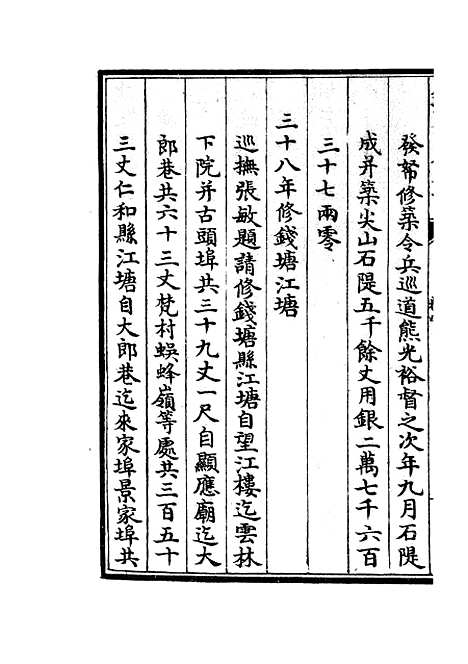 發帑修築令兵巡道熊光裕督之次年九月石隄
成并築尖山石隄五千餘丈用銀二萬七千六百
三十七兩零
三十八年修錢塘江塘
巡撫張敏題請修錢塘縣江塘自望江樓迄雲林
下院并古頭埠共三十九丈一尺自顯應廟迄大
郎巷共六十三丈梵村蜈蜂嶺等處共三百五十
三丈仁和縣江塘自大郎巷迄來家埠景家埠共